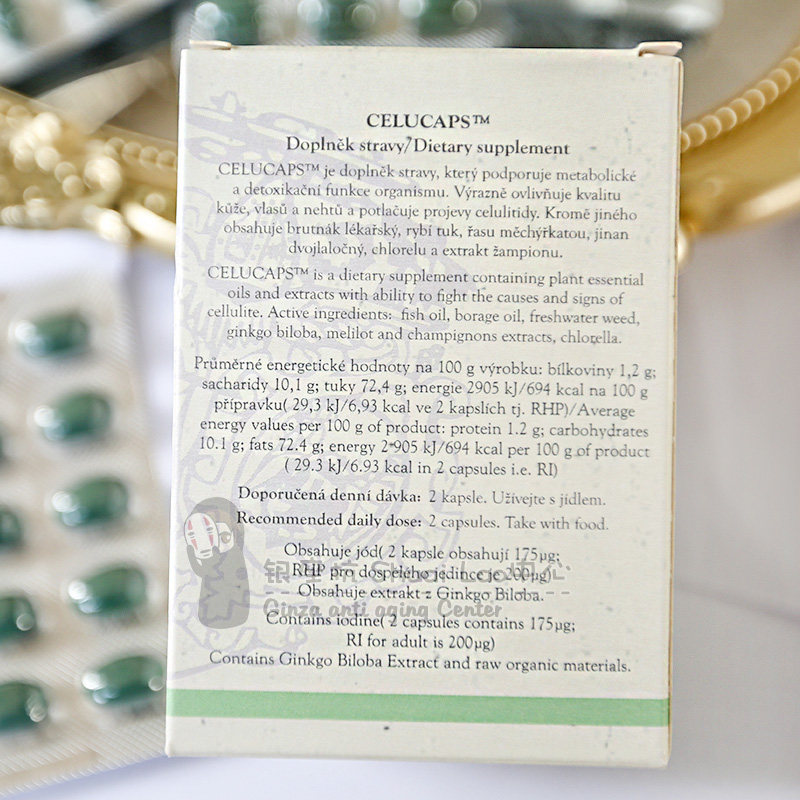 CELUCAPS™
Doplněk stravy/Dietary supplement
CELUCAPS™ je doplněk stravy, který podporuje metabolické
a detoxikační funkce organismu. Výrazně ovlivňuje kvalitu
kůže, vlasů a nehtů a potlačuje projevy celulitidy. Kromě jiného
obsahuje brutnák lékařský, rybí tuk, řasu měchýřkatou, jinan
dvojlaločný, chlorelu a extrakt žampionu.
CELUCAPS™ is a dietary supplement containing plant essential
oils and extracts with ability to fight the causes and signs of
cellulite. Active ingredients: fish oil, borage oil, freshwater weed,
ginkgo biloba, melilot and champignons extracts, chlorella.
Průměrné energetické hodnoty na 100 g výrobku: bílkoviny 1,2 g;
sacharidy 10,1 g; tuky 72,4 g; energie 2905 kJ/694 kcal na 100 g
přípravku( 29,3 kJ/6,93 kcal ve 2 kapslích tj. RHP)/Average
energy values per 100 g of product: protein 1.2 g; carbohydrates
10.1 g; fats 72.4 g; energy 2 905 kJ/694 kcal per 100 g of product
( 29.3 kJ/6.93 kcal in 2 capsules i.e. RI)
Doporučená denní dávka: 2 kapsle. Užívejte s jídlem.
Recommended daily dose: 2 capsules. Take with food.
Obsahuje jód( 2 kapsle obsahují 175µg;
RHP pro dospělého jedince je 200µg)
Obsahuje extrakt z Ginkgo Biloba.
Ginza anti aging Center
Contains iodine( 2 capsules contains 175µg;
RI for adult is 200µg)
Contains Ginkgo Biloba Extract and raw organic materials.